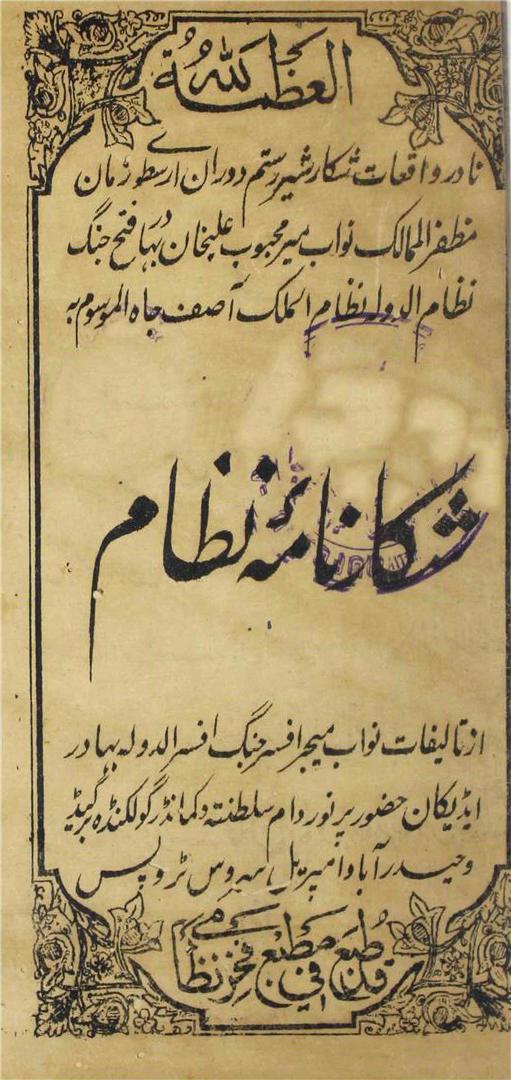 العظمة لله
نادر واقعات شکار شیر رستم دوران ارسطوے زمان
مظفر الممالک نواب میر محبوب علیخان بہادر فتح جنگ
نظام الدولہ نظام الملک آصف جاہ الموسوم بہ
شکارنامۂ نظام
از تالیفات نواب میجر افسر جنگ افسر الدولہ بہادر
ایڈیکان حضور پرنور دام سلطنتہ و کمانڈر گولکنڈہ برگیڈ
و حیدرآباد امپریل سروس ٹروپس
قد طبع فی مطبع فخر نظامی